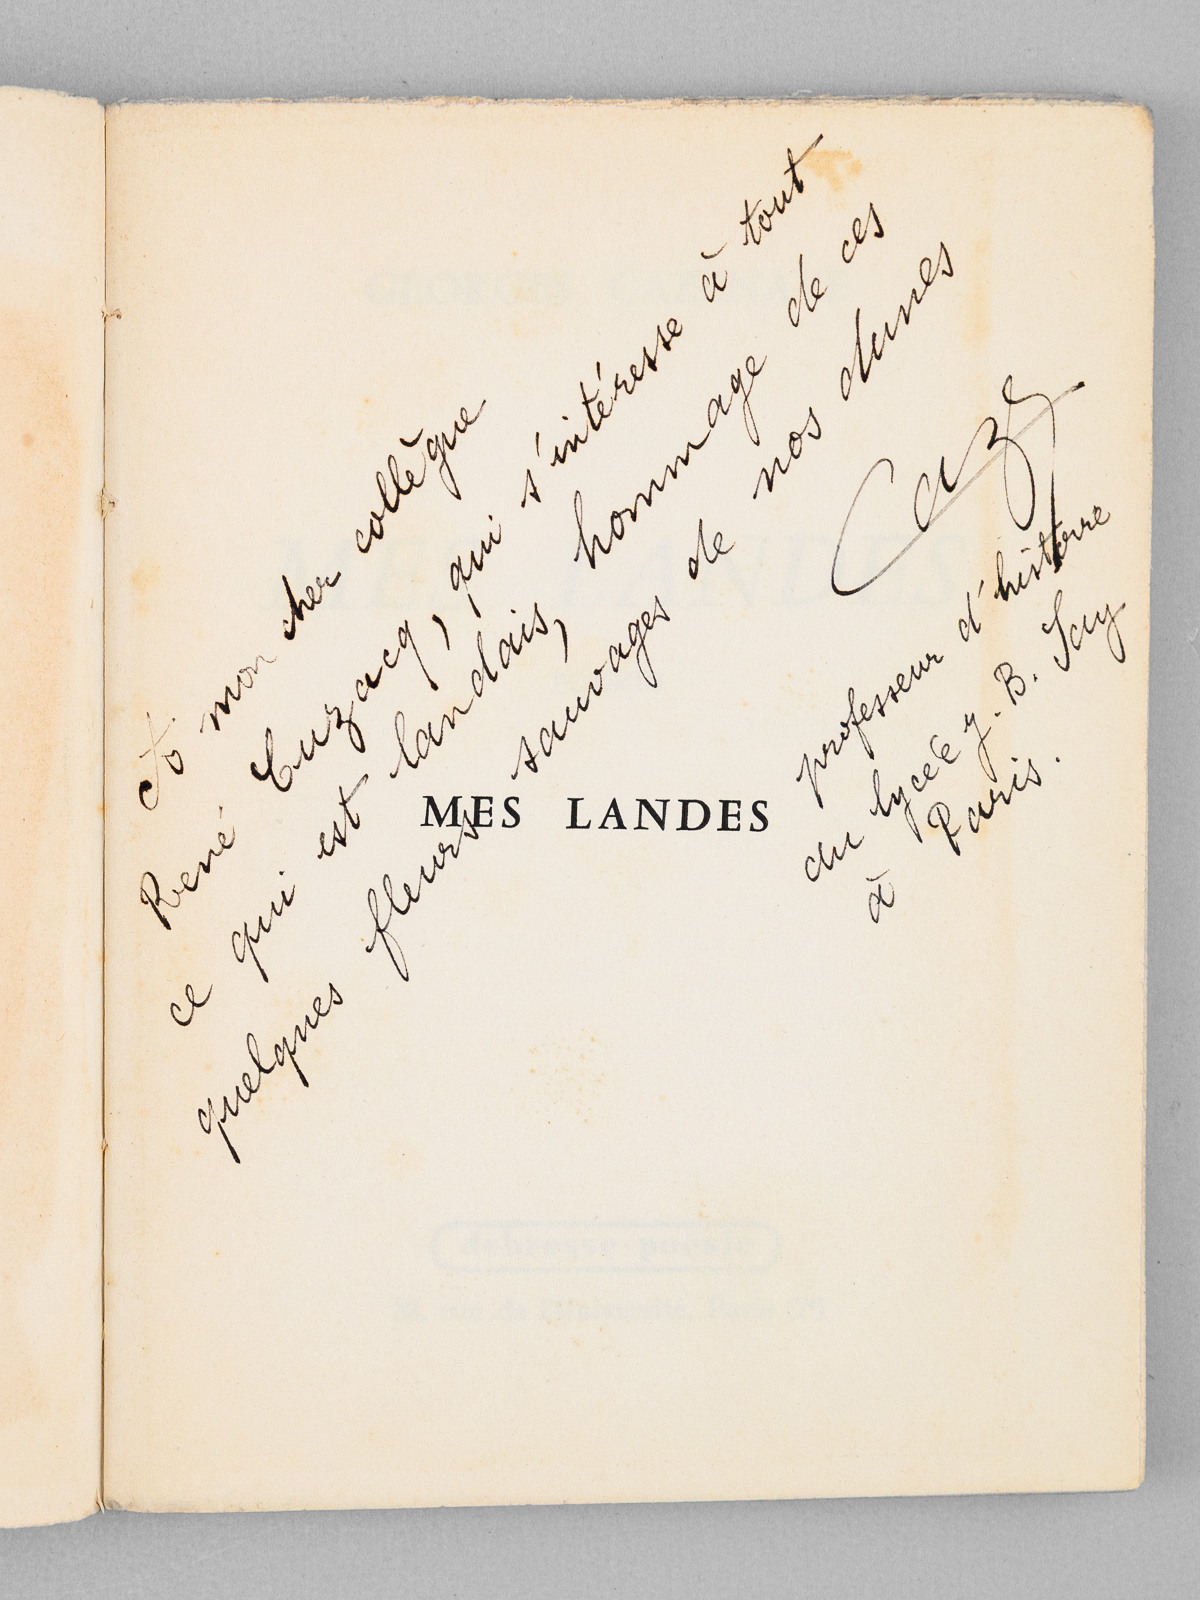 A mon cher collègue
René Cuzacq, qui s'intéresse à tout
ce qui est landais, hommage de ces
quelques fleurs sauvages de nos dunes
professeur d'histoire
du lycée J. B. Say
à Paris.
MES LANDES
GEORGES
MES LANDES
debresse poésie
38, rue de l'Université, Paris (7e)